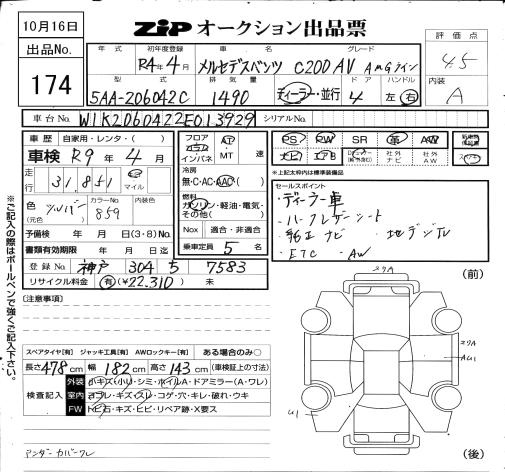 10月16日
ZIP オークション出品票
出品No.
174
年式 初年度登録 車名 グレード
R4年4月 メルセデスベンツ C200 AV AMGライン
評価点
4.5
型式 排気量 ドア ハンドル
5AA-206042C 1490 ディーラー・並行 4 左・右
内装
A
車台No. W1K2060422E013929 シリアルNo.
車歴 自家用・レンタ・( )
車検 R9年4月
走行 31,851 km マイル
色 シルバー (元色) カラーNo. 859 内装色
予備検 年 月 日(3・8)No.
書類有効期限 年 月 日迄
登録No. 神戸 304 ち 7583
リサイクル料金 (有)¥22,310) 未
フロア コラム インパネ AT MT 速
冷房
無・C・AC・AAC( )
燃料
ガソリン・軽油・電気・その他( )
Nox 適合・非適合
乗車定員 5 名
PS PW SR 革 AW
ナビ エアB 社外ナビ 社外AW
※上記太枠内は標準装備品
セールスポイント
・ディーラー車
・ハーフレザーシート
・純正ナビ ・地デジTV
・ETC ・AW
※ご記入の際はボールペンで強くご記入下さい。
(注意事項)
スペアタイヤ[有] ジャッキ工具[有] AWロックキー[有] ある場合のみ〇
長さ 478 cm 幅 182 cm 高さ 143 cm (車検証上の寸法)
検査記入
外装 小キズ・小U・シミ・ホイルA・ドアミラー(A・ワレ)
室内 ヨゴレ・キズ・スレ・コゲ・穴・キレ・破れ・ウキ
FW トビ石・キズ・ヒビ・リペア跡・X要ス
アンダーカバーワレ
(前)
スリA
スリA
AU1
U1
(後)